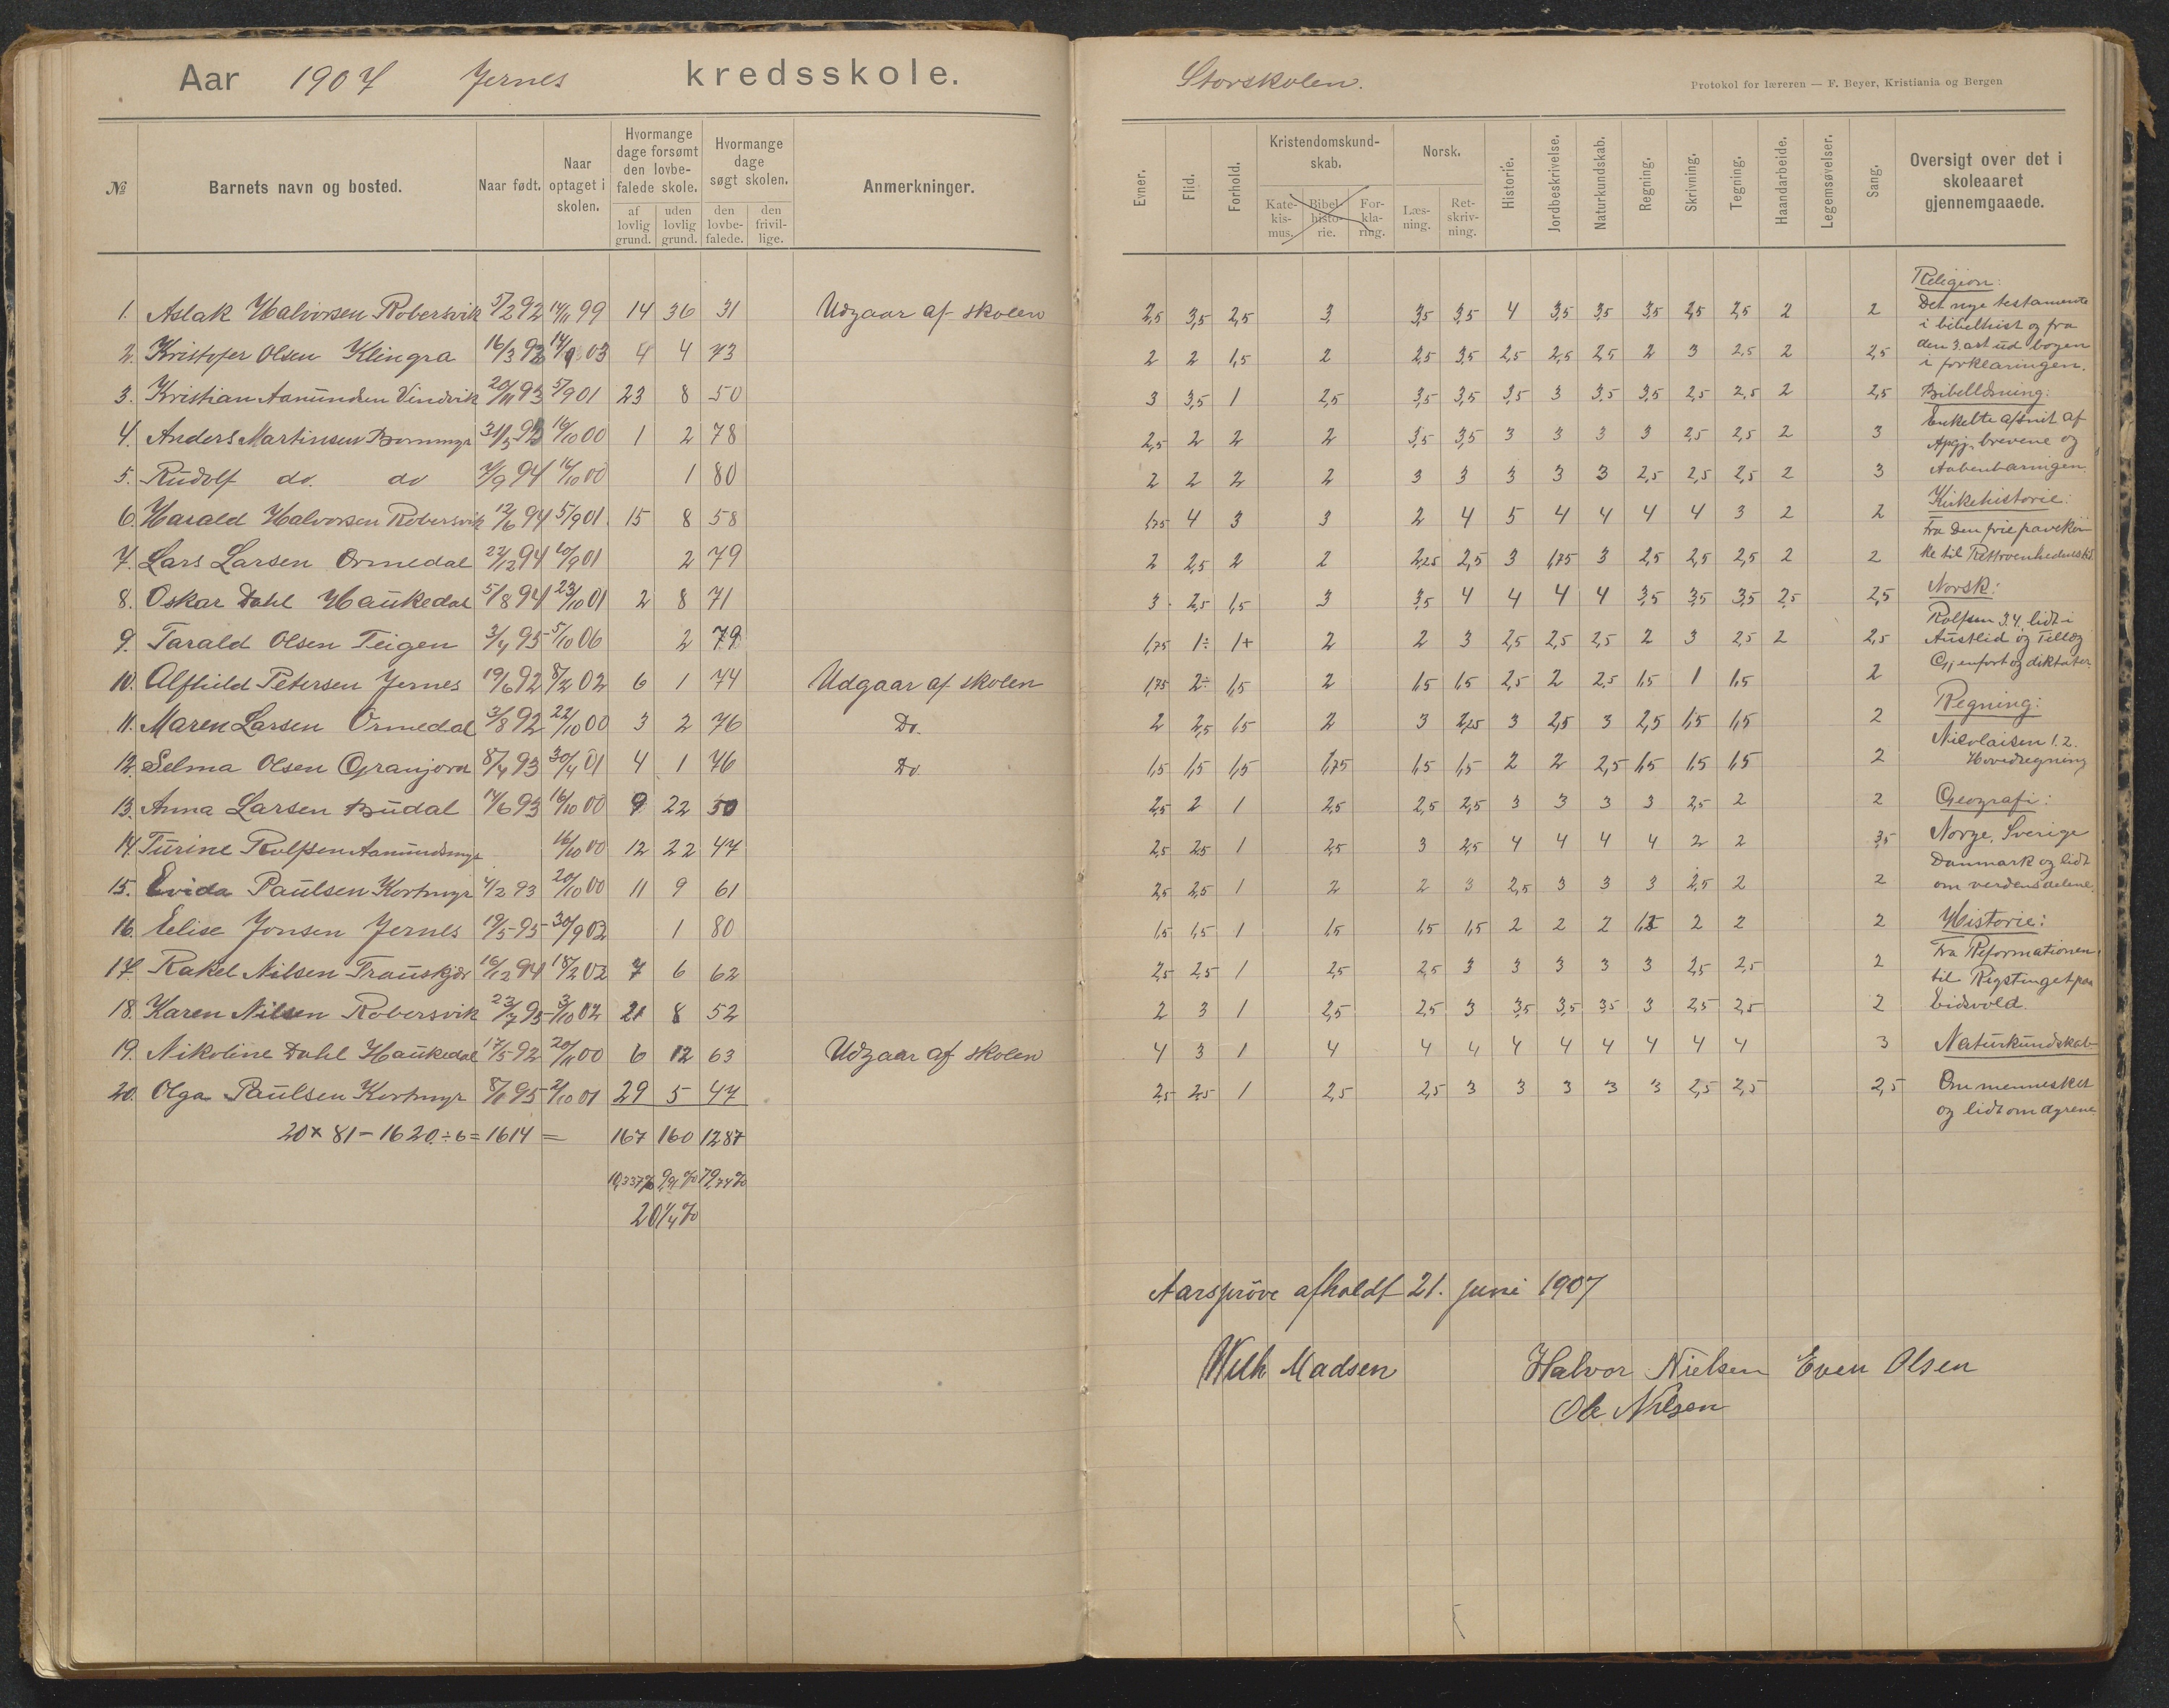 Aar 1907 Jernes kredsskole.
№ Barnets navn og bosted. Naar født. Naar optaget i skolen. Hvormange dage forsømt den lovbefalede skole. af lovlig grund. uden lovlig grund. Hvormange dage søgt skolen. den lovbefalede. den frivillige. Anmerkninger.
1. Aslak Halvorsen Robersvik 5/2 92 14/11 99 14 36 31 Udgaar af skolen
2. Kristofer Olsen Klingra 16/3 92 14/9 03 4 4 73
3. Kristian Aanundsen Vindvik 20/11 93 5/9 01 23 8 50
4. Anders Martinsen 31/5 93 16/10 00 1 2 78
5. Rudolf do. do 7/9 94 16/10 00 1 80
6. Harald Halvorsen Robersvik 12/6 94 5/9 01. 15 8 58
7. Lars Larsen Ormedal 22/12 94 10/9 01 2 79
8. Oskar Dahl Haukedal 5/8 94 23/10 01 2 8 71
9. Tarald Olsen Teigen 3/4 95 5/10 06 2 79
10. Alfhild Petersen Jernes 19/6 92 8/2 02 6 1 74 Udgaar af skolen
11. Maren Larsen Ormedal 3/8 92 22/10 00 3 2 76 Do.
12. Selma Olsen Granjorn 8/4 93 30/4 01 4 1 76 Do
13. Anna Larsen Budal 14/6 93 16/10 00 9 22 50
14. Turine Rolfsen Aanundsmyr 16/10 00 12 22 47
15. Evida Paulsen Kortmyr 4/2 93 20/10 00 11 9 61
16. Elise Jonsen Jernes 19/5 95 30/9 02 1 80
17. Rakel Nilsen Trauskjær 16/12 94 18/2 02 7 6 62
18. Karen Nilsen Robersvik 23/7 95 3/10 02 21 8 52
19. Nikoline Dahl Haukedal 17/5 92 20/11 00 6 12 63 Udgaar af skolen
20. Olga Paulsen Kortmyr 8/8 95 2/10 01 29 5 47
20 × 81 = 1620 ÷ 6 = 1614 = 167 160 1287
10,337% 9,91% 79,74%
20 1/4 %
Storskolen.
Protokol for læreren — F. Beyer, Kristiania og Bergen
Evner. Flid. Forhold. Kristendomskundskab. Katekismus. Bibelhistorie. Forklaring. Norsk. Læsning. Retskrivning. Historie. Jordbeskrivelse. Naturkundskab. Regning. Skrivning. Tegning. Haandarbeide. Legemsøvelser. Sang. Oversigt over det i skoleaaret gjennemgaaede.
2,5 3,5 2,5 3 3,5 3,5 4 3,5 3,5 3,5 2,5 2,5 2 2
2 2 1,5 2 2,5 3,5 2,5 2,5 2,5 2 3 2,5 2 2,5
3 3,5 1 2,5 3,5 3,5 3,5 3 3,5 3,5 2,5 2,5 2 2,5
2,5 2 2 2 3,5 3,5 3 3 3 3 2,5 2,5 2 3
2 2 2 2 3 3 3 3 3 2,5 2,5 2,5 2 3
1,75 4 3 3 2 4 5 4 4 4 4 3 2 2
2 2,5 2 2 2,25 2,5 3 1,75 3 2,5 2,5 2,5 2 2
3 2,5 1,5 3 3,5 4 4 4 4 3,5 3,5 3,5 2,5 2,5
1,75 1÷ 1+ 2 2 3 2,5 2,5 2,5 2 3 2,5 2 2,5
1,75 2÷ 1,5 2 1,5 1,5 2,5 2 2,5 1,5 1 1,5 2
2 2,5 1,5 2 3 2,25 3 2,5 3 2,5 1,5 1,5 2
1,5 1,5 1,5 1,75 1,5 1,5 2 2 2,5 1,5 1,5 1,5 2
2,5 2 1 2,5 2,5 2,5 3 3 3 3 2,5 2 2
2,5 2,5 1 2,5 3 2,5 4 4 4 4 2 2 3,5
2,5 2,5 1 2 2 3 2,5 3 3 3 2,5 2 2
1,5 1,5 1 1,5 1,5 1,5 2 2 2 1,5 2 2 2
2,5 2,5 1 2,5 2,5 3 3 3 3 3 2,5 2,5 2
2 3 1 2,5 2,5 3 3,5 3,5 3,5 3 2,5 2,5 2
4 3 1 4 4 4 4 4 4 4 4 4 3
2,5 2,5 1 2,5 2,5 3 3 3 3 3 2,5 2,5 2,5
Religion:
Det nye testamente
i bibelhist og fra
den 3. art ud bogen
i forklaringen.
Bibellæsning:
Enkelte afsnit af
Apgj. brevene og
Aabenbaringen.
Kirkehistorie:
Fra den
ke til
Norsk:
Rolfsen 3.4. lidt i
Austlid og Tillæg
Gjenfort og diktater.
Regning:
Nicolaisen 1. 2.
Hovedregning
Geografi:
Norge, Sverige
Danmark og lidt
om verdensdelene.
Historie:
Fra Reformationen
til Rigstinget paa
Eidsvold.
Naturkundskab
Om mennesket
og lidt om dyrene
Aarsprøve afholdt 21. juni 1907
Wilh Madsen Halvor Nielsen Even Olsen
Ole Nilsen